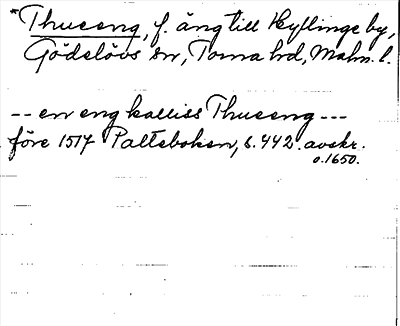 *Thueeng, f. äng till Hyllinge by,
Gödelövs sn, Torna hd, Malm. l.
-- en eng kalliss Thueeng ---
före 1517 Palteboken, s. 442. avskr.
o. 1650.